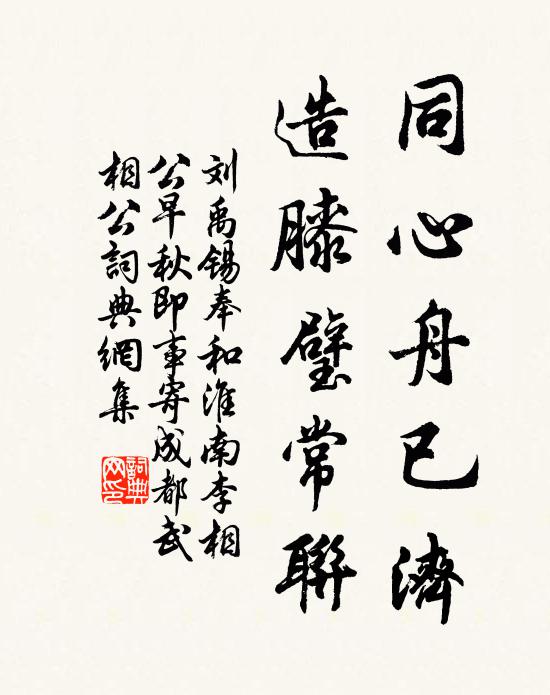 同心舟已濟
造膝璧常聯
刘禹锡奉和淮南李相
公早秋即事寄成都武
相公詞典網集
詞典
网印